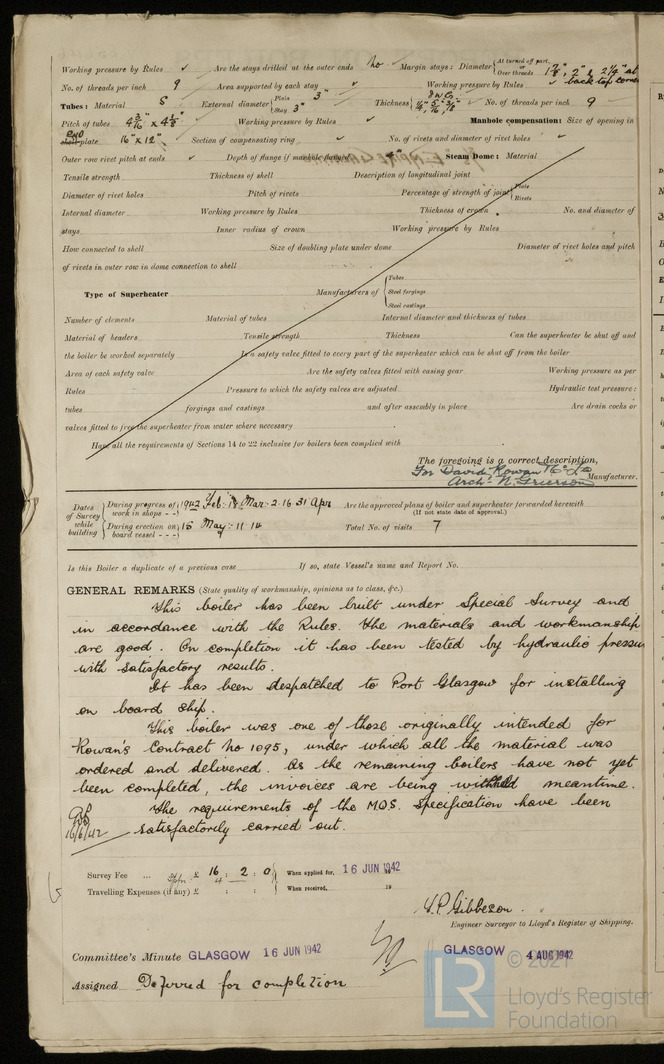 Working pressure by Rules ✓ Are the stays drilled at the outer ends No Margin stays: Diameter { At turned off part, or Over threads 1⅞", 2" & 2¼" at
No. of threads per inch 9 Area supported by each stay ✓ Working pressure by Rules ✓ back top corner
Tubes: Material S External diameter { Plain 3" Stay 3" Thickness { 8 W.G. ¼", 5/16", ⅜" No. of threads per inch 9
Pitch of tubes 4 3/16" x 4⅛" Working pressure by Rules ✓ Manhole compensation: Size of opening in
end shell plate 16" x 12" Section of compensating ring ✓ No. of rivets and diameter of rivet holes ✓
Outer row rivet pitch at ends ✓ Depth of flange if manhole flanged Steam Dome: Material
Tensile strength Thickness of shell Description of longitudinal joint
Diameter of rivet holes Pitch of rivets Percentage of strength of joint { Plate Rivets
Internal diameter Working pressure by Rules Thickness of crown No. and diameter of
stays Inner radius of crown Working pressure by Rules
How connected to shell Size of doubling plate under dome Diameter of rivet holes and pitch
of rivets in outer row in dome connection to shell
Type of Superheater Manufacturers of { Tubes Steel forgings Steel castings
Number of elements Material of tubes Internal diameter and thickness of tubes
Material of headers Tensile strength Thickness Can the superheater be shut off and
the boiler be worked separately Is a safety valve fitted to every part of the superheater which can be shut off from the boiler
Area of each safety valve Are the safety valves fitted with easing gear Working pressure as per
Rules Pressure to which the safety valves are adjusted Hydraulic test pressure:
tubes forgings and castings and after assembly in place Are drain cocks or
valves fitted to free the superheater from water where necessary
Have all the requirements of Sections 14 to 22 inclusive for boilers been complied with
The foregoing is a correct description,
For David Rowan & Co Ld
Archd. W. Grierson Manufacturer.
Dates of Survey while building { During progress of work in shops - - } 1942 Feb: Mar: 2. 16. 31 Apr Are the approved plans of boiler and superheater forwarded herewith
(If not state date of approval.)
{ During erection on board vessel - - - } 15 May: 11. 14 Total No. of visits 7
Is this Boiler a duplicate of a previous case If so, state Vessel's name and Report No.
GENERAL REMARKS (State quality of workmanship, opinions as to class, &c.)
This boiler has been built under Special Survey and
in accordance with the Rules. The materials and workmanship
are good. On completion it has been tested by hydraulic pressure
with satisfactory results.
It has been despatched to Port Glasgow for installing
on board ship.
This boiler was one of those originally intended for
Rowan's Contract No 1095, under which all the material was
ordered and delivered. As the remaining boilers have not yet
been completed, the invoices are being withheld meantime.
The requirements of the M.O.S. Specification have been
16/6/42 satisfactorily carried out.
Survey Fee ... £ 16 : 2 : 0 When applied for, 16 JUN 1942
Travelling Expenses (if any) £ : : When received, 19
G.P. Gibbeson.
Engineer Surveyor to Lloyd's Register of Shipping.
Committee's Minute GLASGOW 16 JUN 1942 GLASGOW 4 AUG 1942
Assigned Deferred for completion
© 2021
LR
Lloyd's Register
Foundation